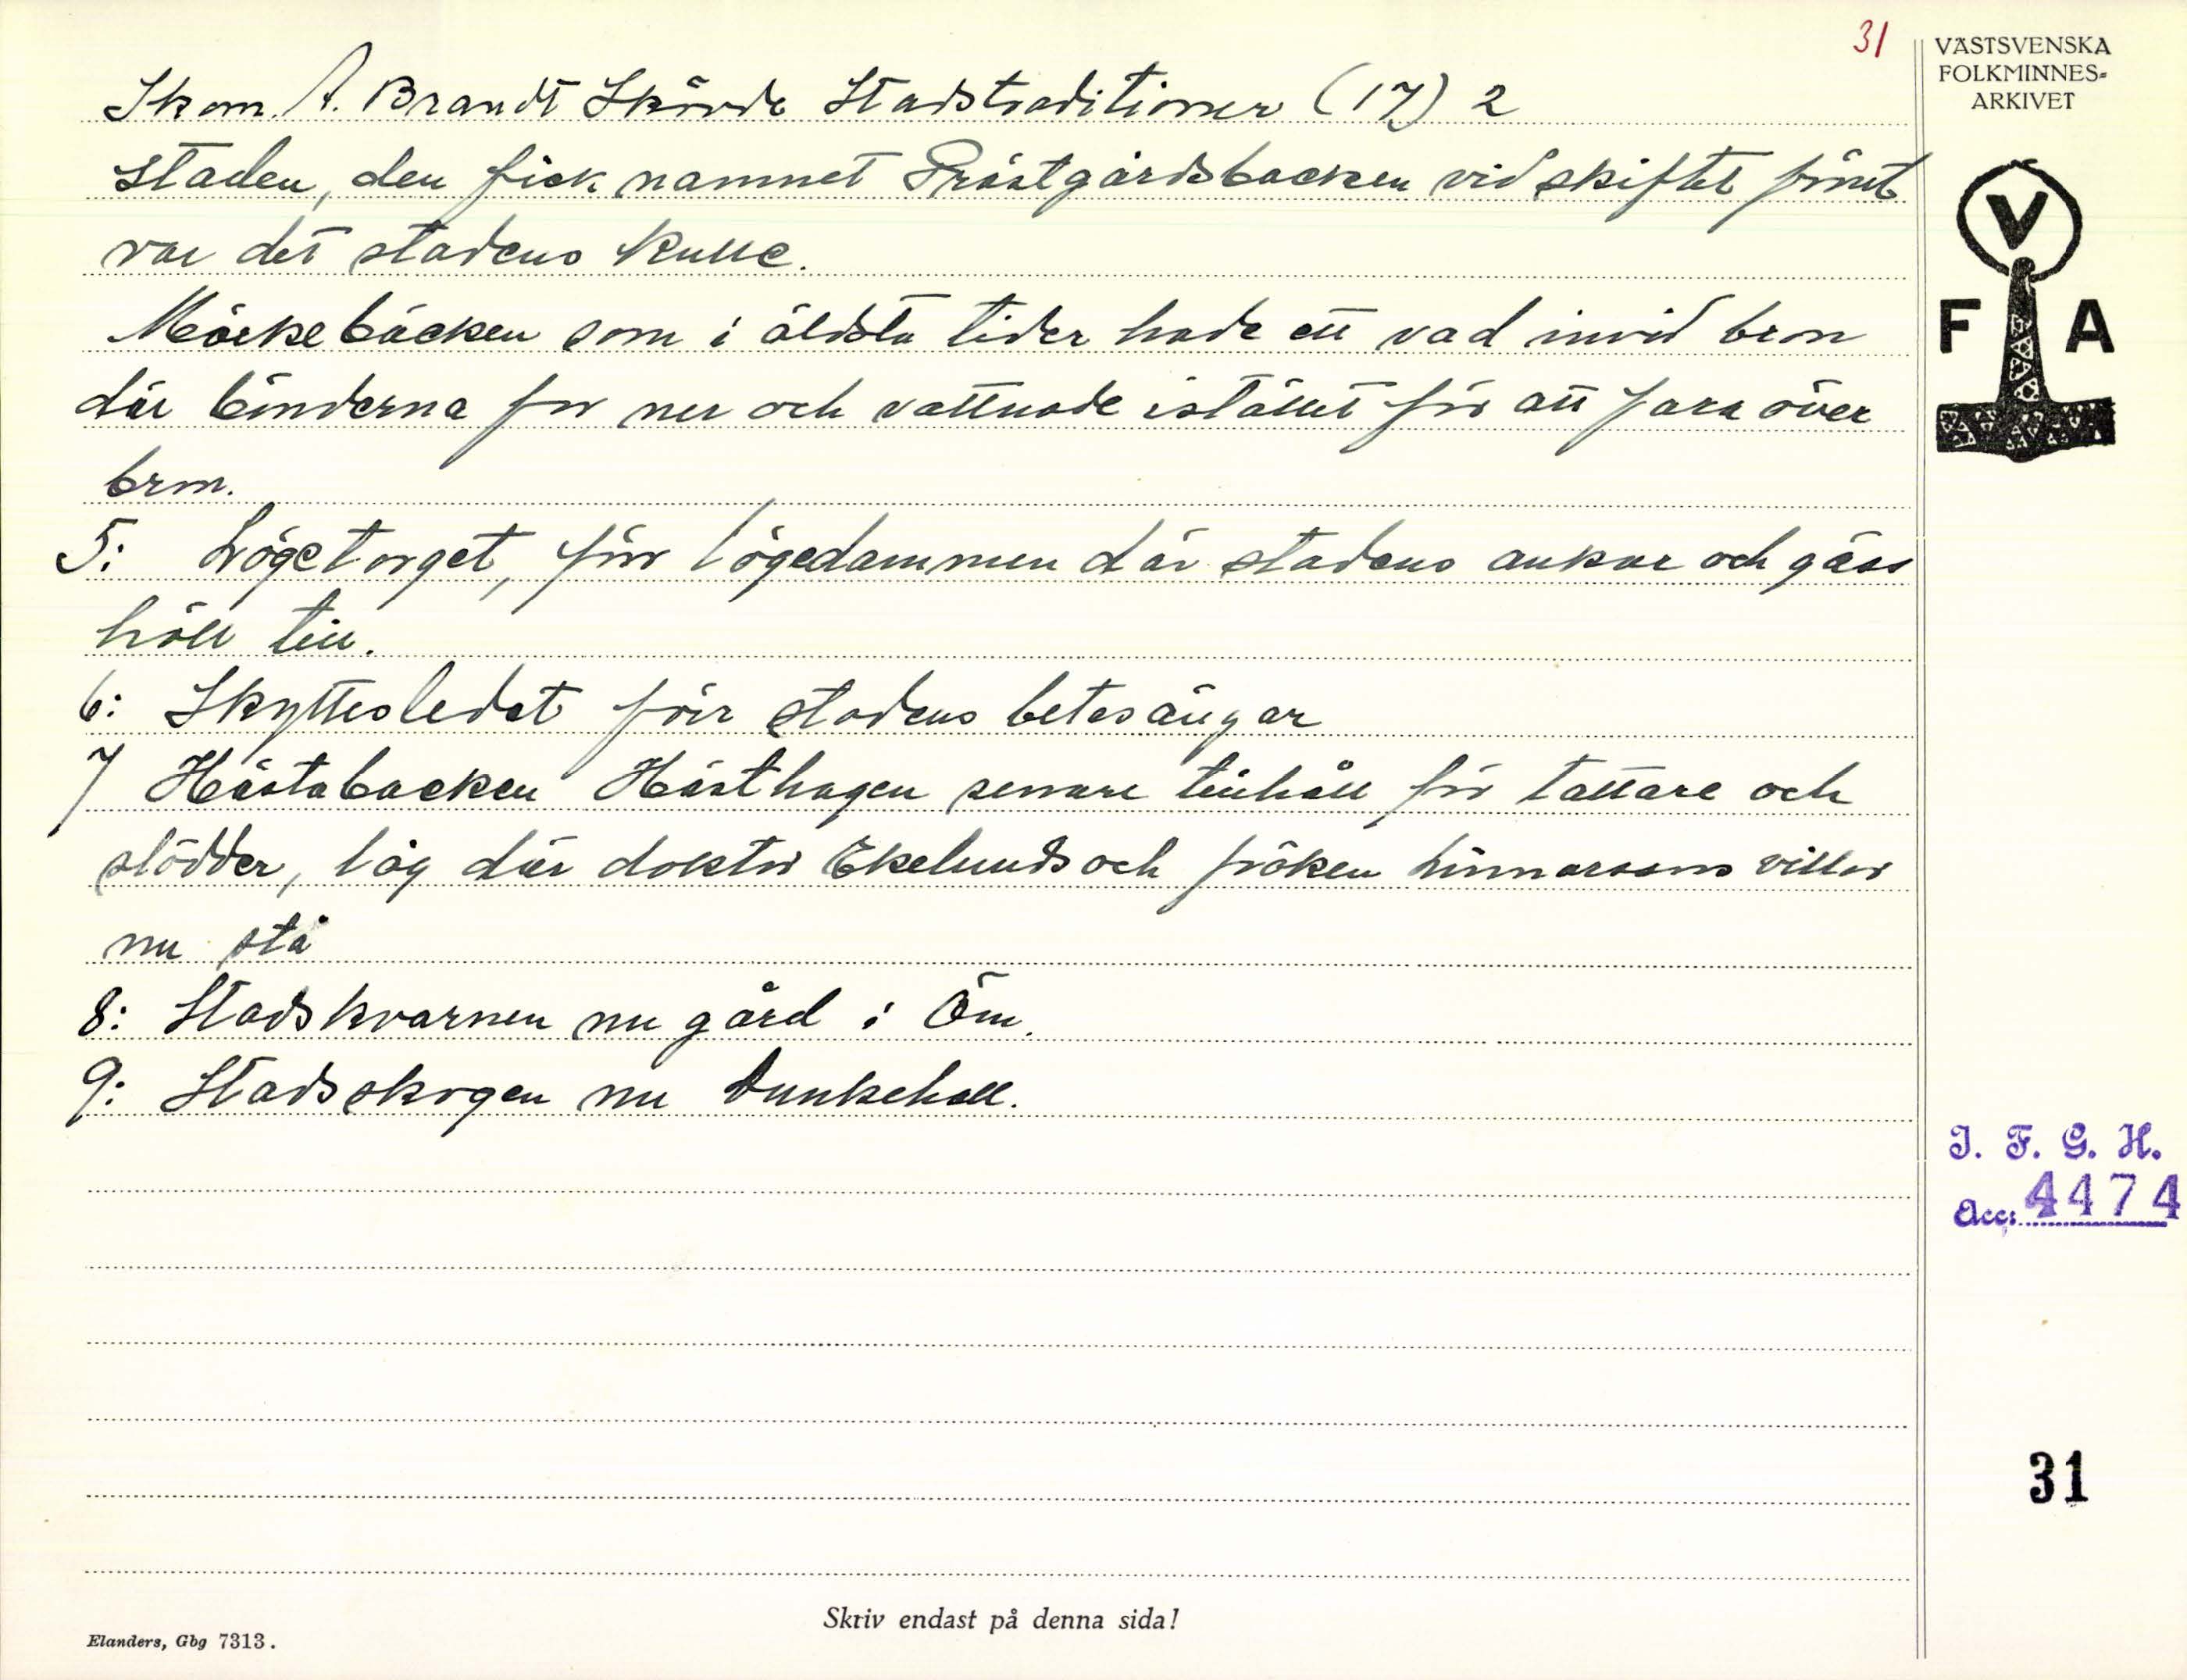 31
VÄSTSVENSKA
FOLKMINNES-
ARKIVET
Skom. A. Brandt Skövde Stadstraditioner (17) 2
staden, den fick namnet Prästgårdsbacken vid skiftet förut
var det stadens kulle.
Mörkebäcken som i äldsta tider hade ett vad invid bron
där bönderna for ner och vattnade istället för att fara över
bron.
5: Lögetorget, förr lögedammen där stadens ankor och gäss
höll till.
6: Skyttesledet förr stadens betesängar
7 Hästabacken Hästhagen senare tillhåll för tattare och
slödder, låg där doktor Ekelunds och fröken Linnarssons villor
nu stå
8: Stadskvarnen nu gård i Öm.
9: Stadsskogen nu Dunkehall.
V
F A
I. F. G. H.
Acc: 4474
31
Skriv endast på denna sida!
Elanders, Gbg 7313.